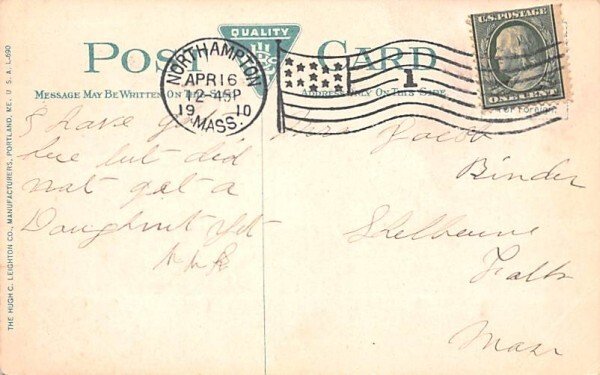 POST CARD
QUALITY
MESSAGE MAY BE WRITTEN ON THIS SIDE
ADDRESS ONLY ON THIS SIDE
NORTHAMPTON
APR 16
12-45P
19 10
MASS.
1
U.S. POSTAGE
ONE CENT
I have
here but did
not get a
Doughnut yet
Jacob
Binder
Shelburne
Falls
Mass
THE HUGH C. LEIGHTON CO., MANUFACTURERS, PORTLAND, ME., U. S. A. L-690